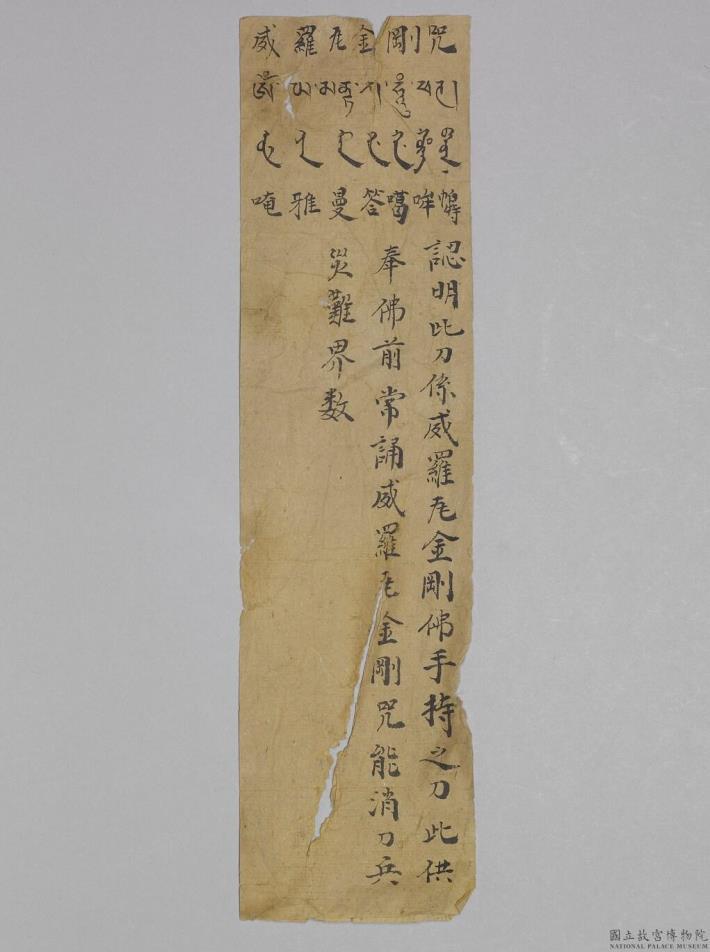 威羅瓦金剛咒
唵雅曼答噶吽
認明此刀係威羅瓦金剛佛手持之刀此供
奉佛前常誦威羅瓦金剛咒能消刀兵
災難界数
國立故宮博物院
NATIONAL PALACE MUSEUM